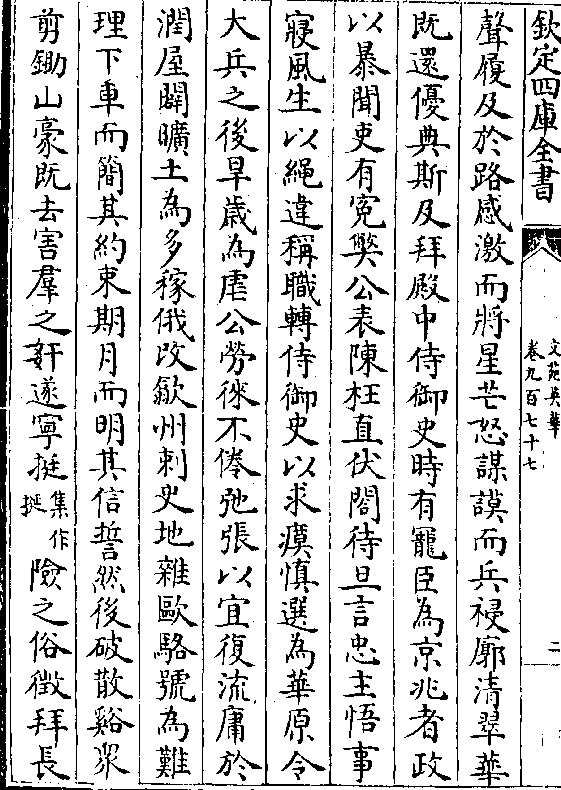 欽定四庫全書
文苑英華
卷九百七十七
二
聲履及於路感激而將星芒怒謀謨而兵祲廓清翠華
既還優典斯及拜殿中侍御史時有寵臣為京兆者政
以暴聞吏有寃獘公表陳枉直伏閤待旦言忠主悟事
寝風生以繩違稱職轉侍御史以求瘼慎選為華原令
大兵之後旱歳為虐公勞徠不倦弛張以宜復流庸於
潤屋闢曠土為多稼俄改歙州刺史地雜歐駱號為難
理下車而簡其約束期月而明其信誓然後破散谿衆
剪鋤山豪既去害羣之奸遂寧挺集作挻險之俗徴拜長